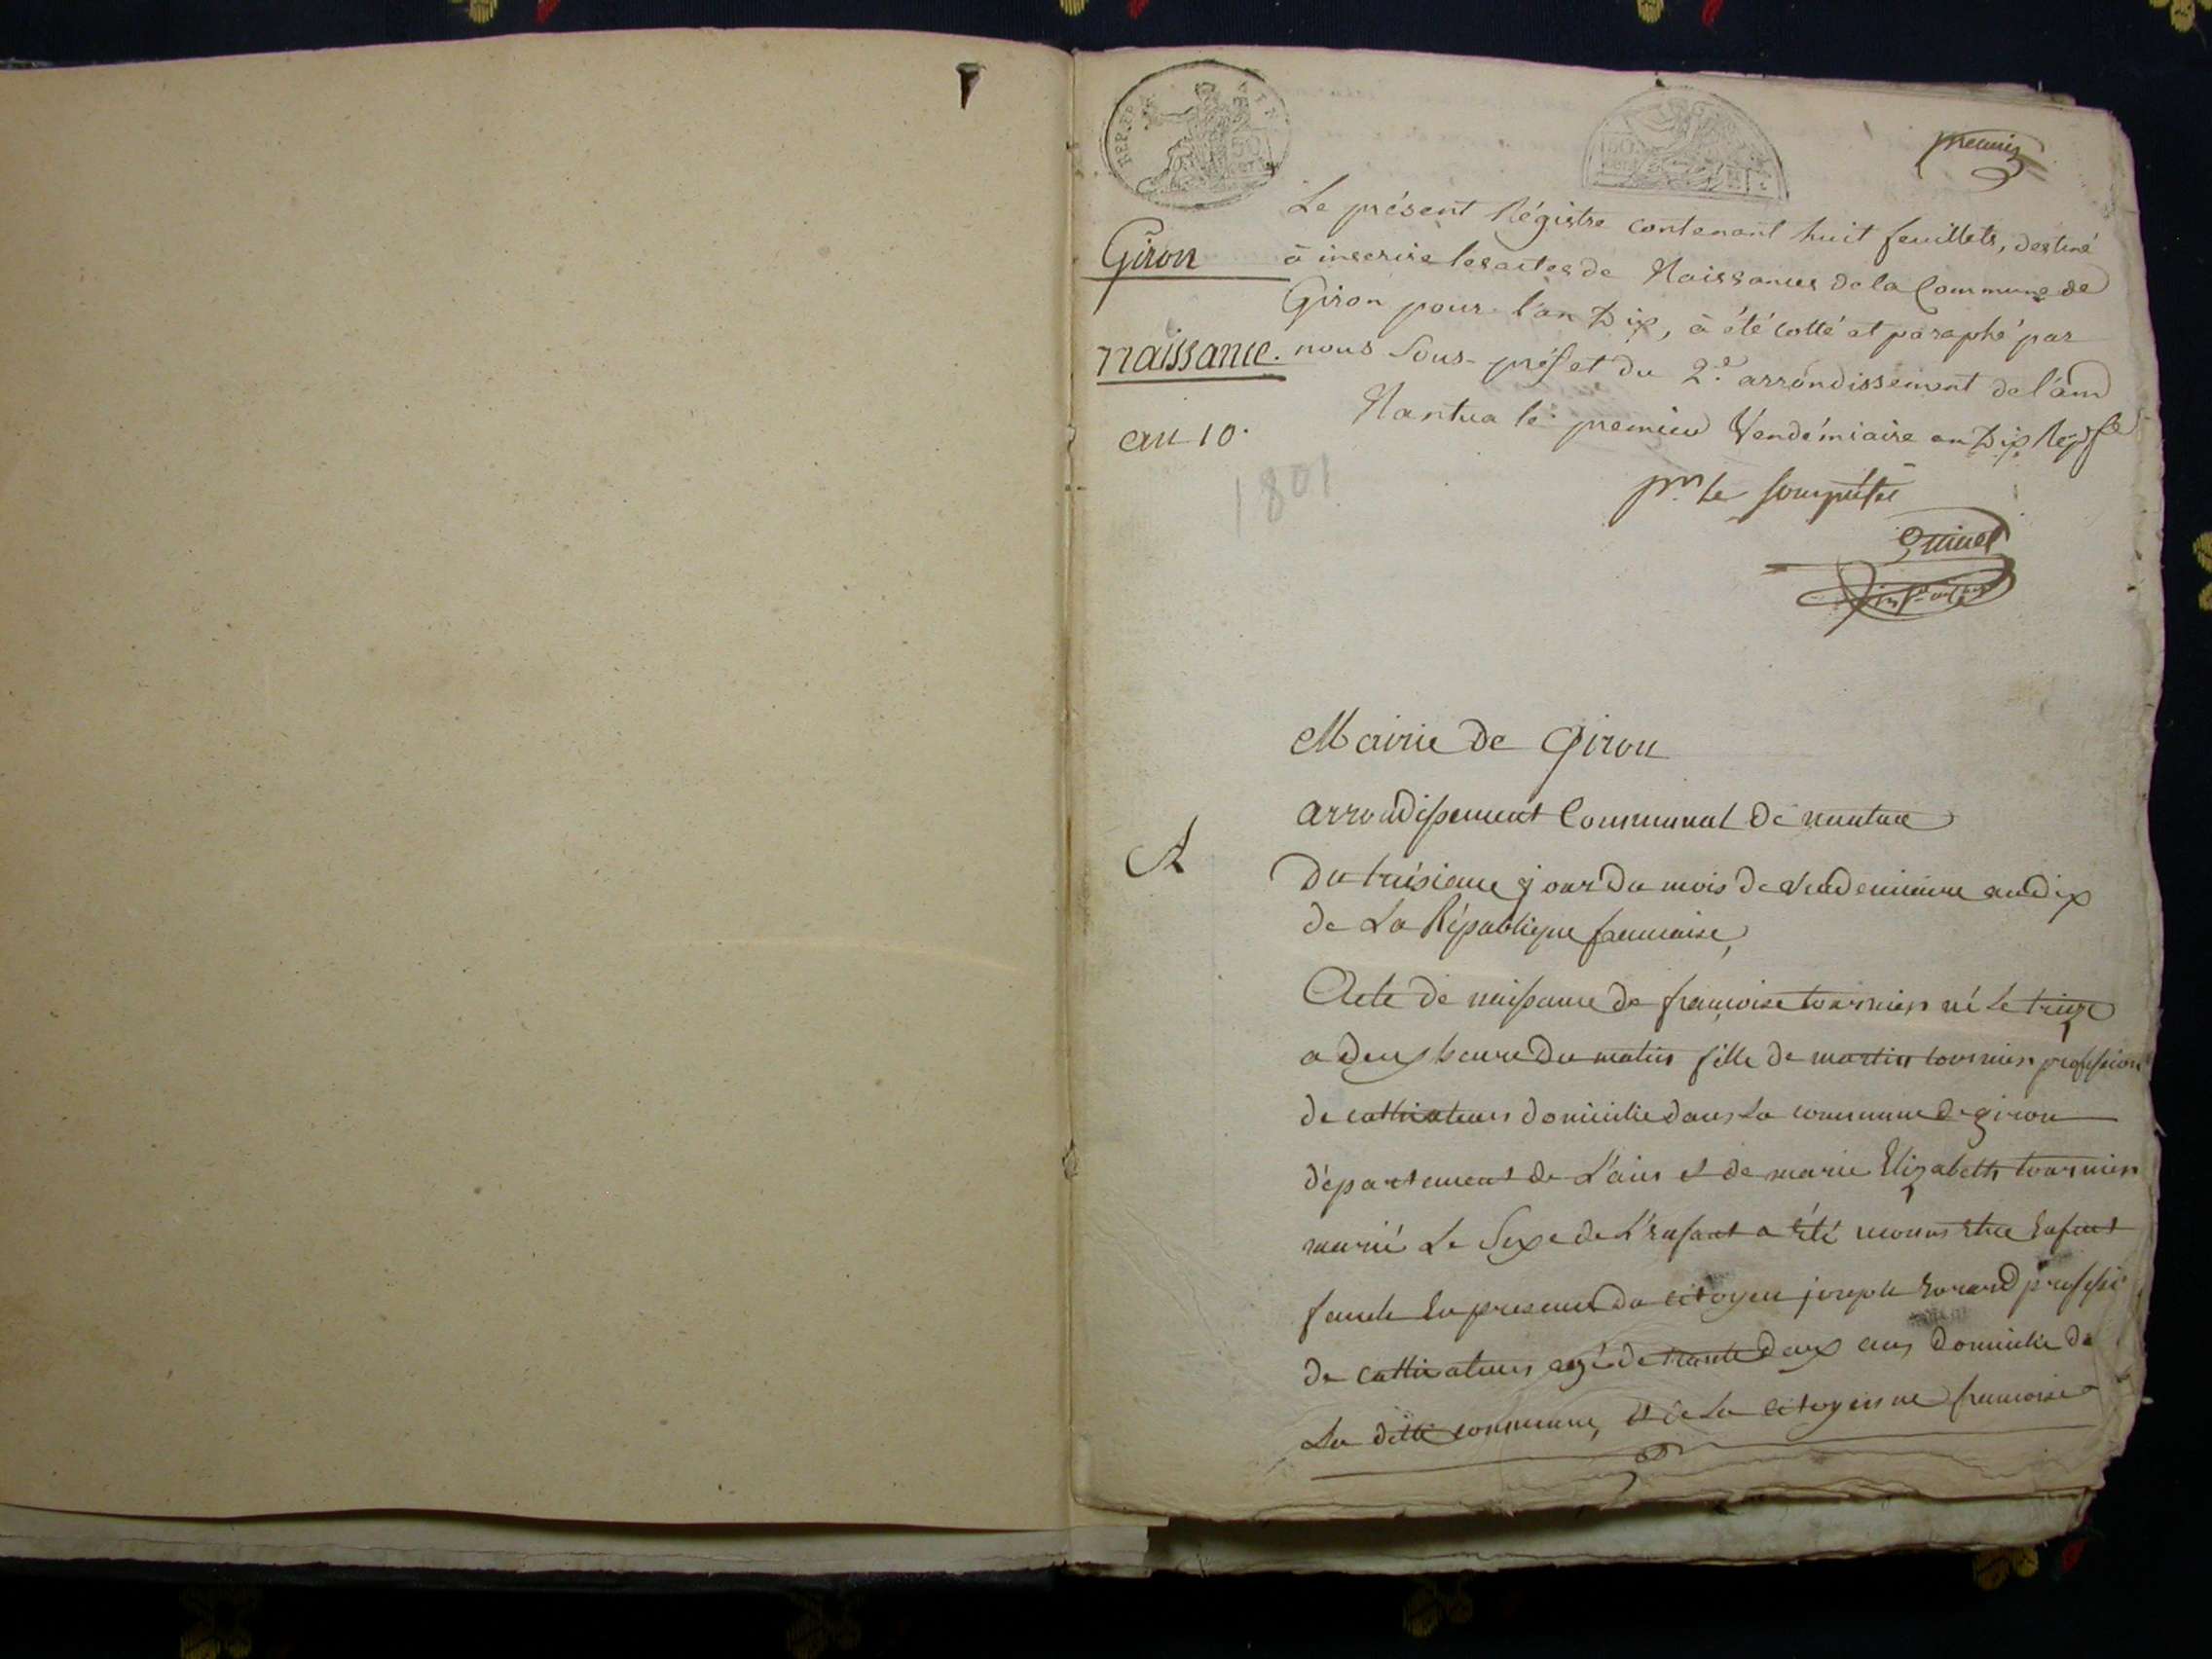 REP. FRA
50
premier
Le présent Régistre contenant huit feuillets, destiné
à inscrire les actes de Naissances de la Commune de
Giron pour l'an Dix, à été cotté et paraphé par
nous Sous-préfet du 2.e arrondissement de l'ain
Nantua le premier Vendémiaire an Dix
Giron
naissance.
an 10.
1801
pr le souspréfet
Mairie de Giron
arrondissement Communal de nantua
A
Du treisieme jour du mois de vendemiaire an dix
de La République francaise,
Acte de naissance de françoise tournier né Le treize
a deux heure du matin fille de martin tournier profession
de cultivateur domicilie dans La commune de giron
département de L'ain et de marie Elizabeth tournier
marié Le Sexe de L'enfant a été reconu Etre Enfant
famele En presence du citoyen joseph Evrard professi
de cultivateur agé de trante deux ans domicilie de
La ditte commune, et de La citoyenne francoise